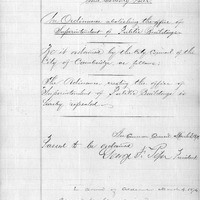 An Ordinance abolishing the office of
Superintendent of Public Buildings
Be it ordained by the City Council of the
City of Cambridge, as follows:
The Ordinance creating the office of
Superintendent of Public Buildings is
hereby repealed.
In Common Council
Passed to be ordained
George F. Piper President